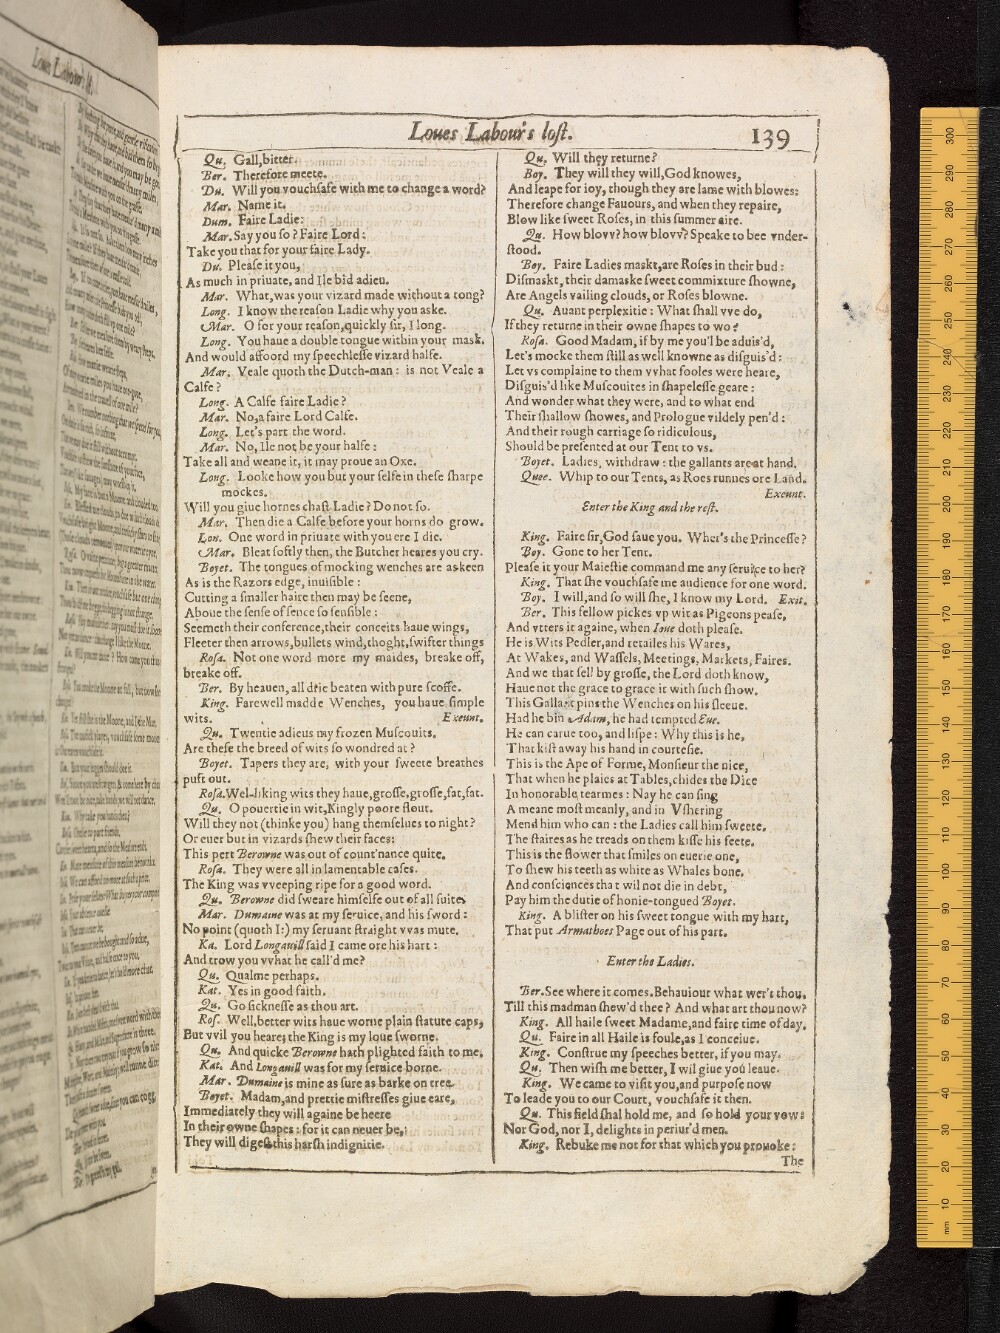 Loues Labour's lost.
139
Qu. Gall, bitter.
Ber. Therefore meete.
Du. Will you vouchsafe with me to change a word?
Mar. Name it.
Dum. Faire Ladie:
Mar. Say you so? Faire Lord:
Take you that for your faire Lady.
Du. Please it you,
As much in priuate, and Ile bid adieu.
Mar. What, was your vizard made without a tong?
Long. I know the reason Ladie why you aske.
Mar. O for your reason, quickly sir, I long.
Long. You haue a double tongue within your mask.
And would affoord my speechlesse vizard halfe.
Mar. Veale quoth the Dutch-man: is not Veale a
Calfe?
Long. A Calfe faire Ladie?
Mar. No, a faire Lord Calfe.
Long. Let's part the word.
Mar. No, Ile not be your halfe:
Take all and weane it, it may proue an Oxe.
Long. Looke how you but your selfe in these sharpe
mockes.
Will you giue hornes chast Ladie? Do not so.
Mar. Then die a Calfe before your horns do grow.
Lon. One word in priuate with you ere I die.
Mar. Bleat softly then, the Butcher heares you cry.
Boyet. The tongues of mocking wenches are as keen
As is the Razors edge, inuisible:
Cutting a smaller haire then may be seene,
Aboue the sense of sence so sensible:
Seemeth their conference, their conceits haue wings,
Fleeter then arrows, bullets wind, thoght, swifter things
Rosa. Not one word more my maides, breake off,
breake off.
Ber. By heauen, all drie beaten with pure scoffe.
King. Farewell madde Wenches, you haue simple
wits. Exeunt.
Qu. Twentie adieus my frozen Muscouits.
Are these the breed of wits so wondred at?
Boyet. Tapers they are, with your sweete breathes
puft out.
Rosa. Wel-liking wits they haue, grosse, grosse, fat, fat.
Qu. O pouertie in wit, Kingly poore flout.
Will they not (thinke you) hang themselues to night?
Or euer but in vizards shew their faces:
This pert Berowne was out of count'nance quite.
Rosa. They were all in lamentable cases.
The King was vveeping ripe for a good word.
Qu. Berowne did sweare himselfe out of all suite.
Mar. Dumaine was at my seruice, and his sword:
No point (quoth I:) my seruant straight vvas mute.
Ka. Lord Longauill said I came ore his hart:
And trow you vvhat he call'd me?
Qu. Qualme perhaps.
Kat. Yes in good faith.
Qu. Go sicknesse as thou art.
Ros. Well, better wits haue worne plain statute caps,
But vvil you heare; the King is my loue sworne.
Qu. And quicke Berowne hath plighted faith to me.
Kat. And Longauill was for my seruice borne.
Mar. Dumaine is mine as sure as barke on tree.
Boyet. Madam, and prettie mistresses giue eare,
Immediately they will againe be heere
In their owne shapes: for it can neuer be,
They will digest this harsh indignitie.
Qu. Will they returne?
Boy. They will they will, God knowes,
And leape for ioy, though they are lame with blowes:
Therefore change Fauours, and when they repaire,
Blow like sweet Roses, in this summer aire.
Qu. How blovv? how blovv? Speake to bee vnder-
stood.
Boy. Faire Ladies maskt, are Roses in their bud:
Dismaskt, their damaske sweet commixture showne,
Are Angels vailing clouds, or Roses blowne.
Qu. Auant perplexitie: What shall vve do,
If they returne in their owne shapes to wo?
Rosa. Good Madam, if by me you'l be aduis'd,
Let's mocke them still as well knowne as disguis'd:
Let vs complaine to them vvhat fooles were heare,
Disguis'd like Muscouites in shapelesse geare:
And wonder what they were, and to what end
Their shallow showes, and Prologue vildely pen'd:
And their rough carriage so ridiculous,
Should be presented at our Tent to vs.
Boyet. Ladies, withdraw: the gallants are at hand.
Quee. Whip to our Tents, as Roes runnes ore Land.
Exeunt.
Enter the King and the rest.
King. Faire sir, God saue you. Wher's the Princesse?
Boy. Gone to her Tent.
Please it your Maiestie command me any seruice to her?
King. That she vouchsafe me audience for one word.
Boy. I will, and so will she, I know my Lord. Exit.
Ber. This fellow pickes vp wit as Pigeons pease,
And vtters it againe, when Ioue doth please.
He is Wits Pedler, and retailes his Wares,
At Wakes, and Wassels, Meetings, Markets, Faires.
And we that sell by grosse, the Lord doth know,
Haue not the grace to grace it with such show.
This Gallant pins the Wenches on his sleeue.
Had he bin Adam, he had tempted Eue.
He can carue too, and lispe: Why this is he,
That kist away his hand in courtesie.
This is the Ape of Forme, Monsieur the nice,
That when he plaies at Tables, chides the Dice
In honorable tearmes: Nay he can sing
A meane most meanly, and in Vshering
Mend him who can: the Ladies call him sweete.
The staires as he treads on them kisse his feete.
This is the flower that smiles on euerie one,
To shew his teeth as white as Whales bone.
And consciences that wil not die in debt,
Pay him the dutie of honie-tongued Boyet.
King. A blister on his sweet tongue with my hart,
That put Armathoes Page out of his part.
Enter the Ladies.
Ber. See where it comes. Behauiour what wer't thou,
Till this madman shew'd thee? And what art thou now?
King. All haile sweet Madame, and faire time of day.
Qu. Faire in all Haile is foule, as I conceiue.
King. Construe my speeches better, if you may.
Qu. Then wish me better, I wil giue you leaue.
King. We came to visit you, and purpose now
To leade you to our Court, vouchsafe it then.
Qu. This field shal hold me, and so hold your vow:
Nor God, nor I, delights in periur'd men.
King. Rebuke me not for that which you prouoke:
The